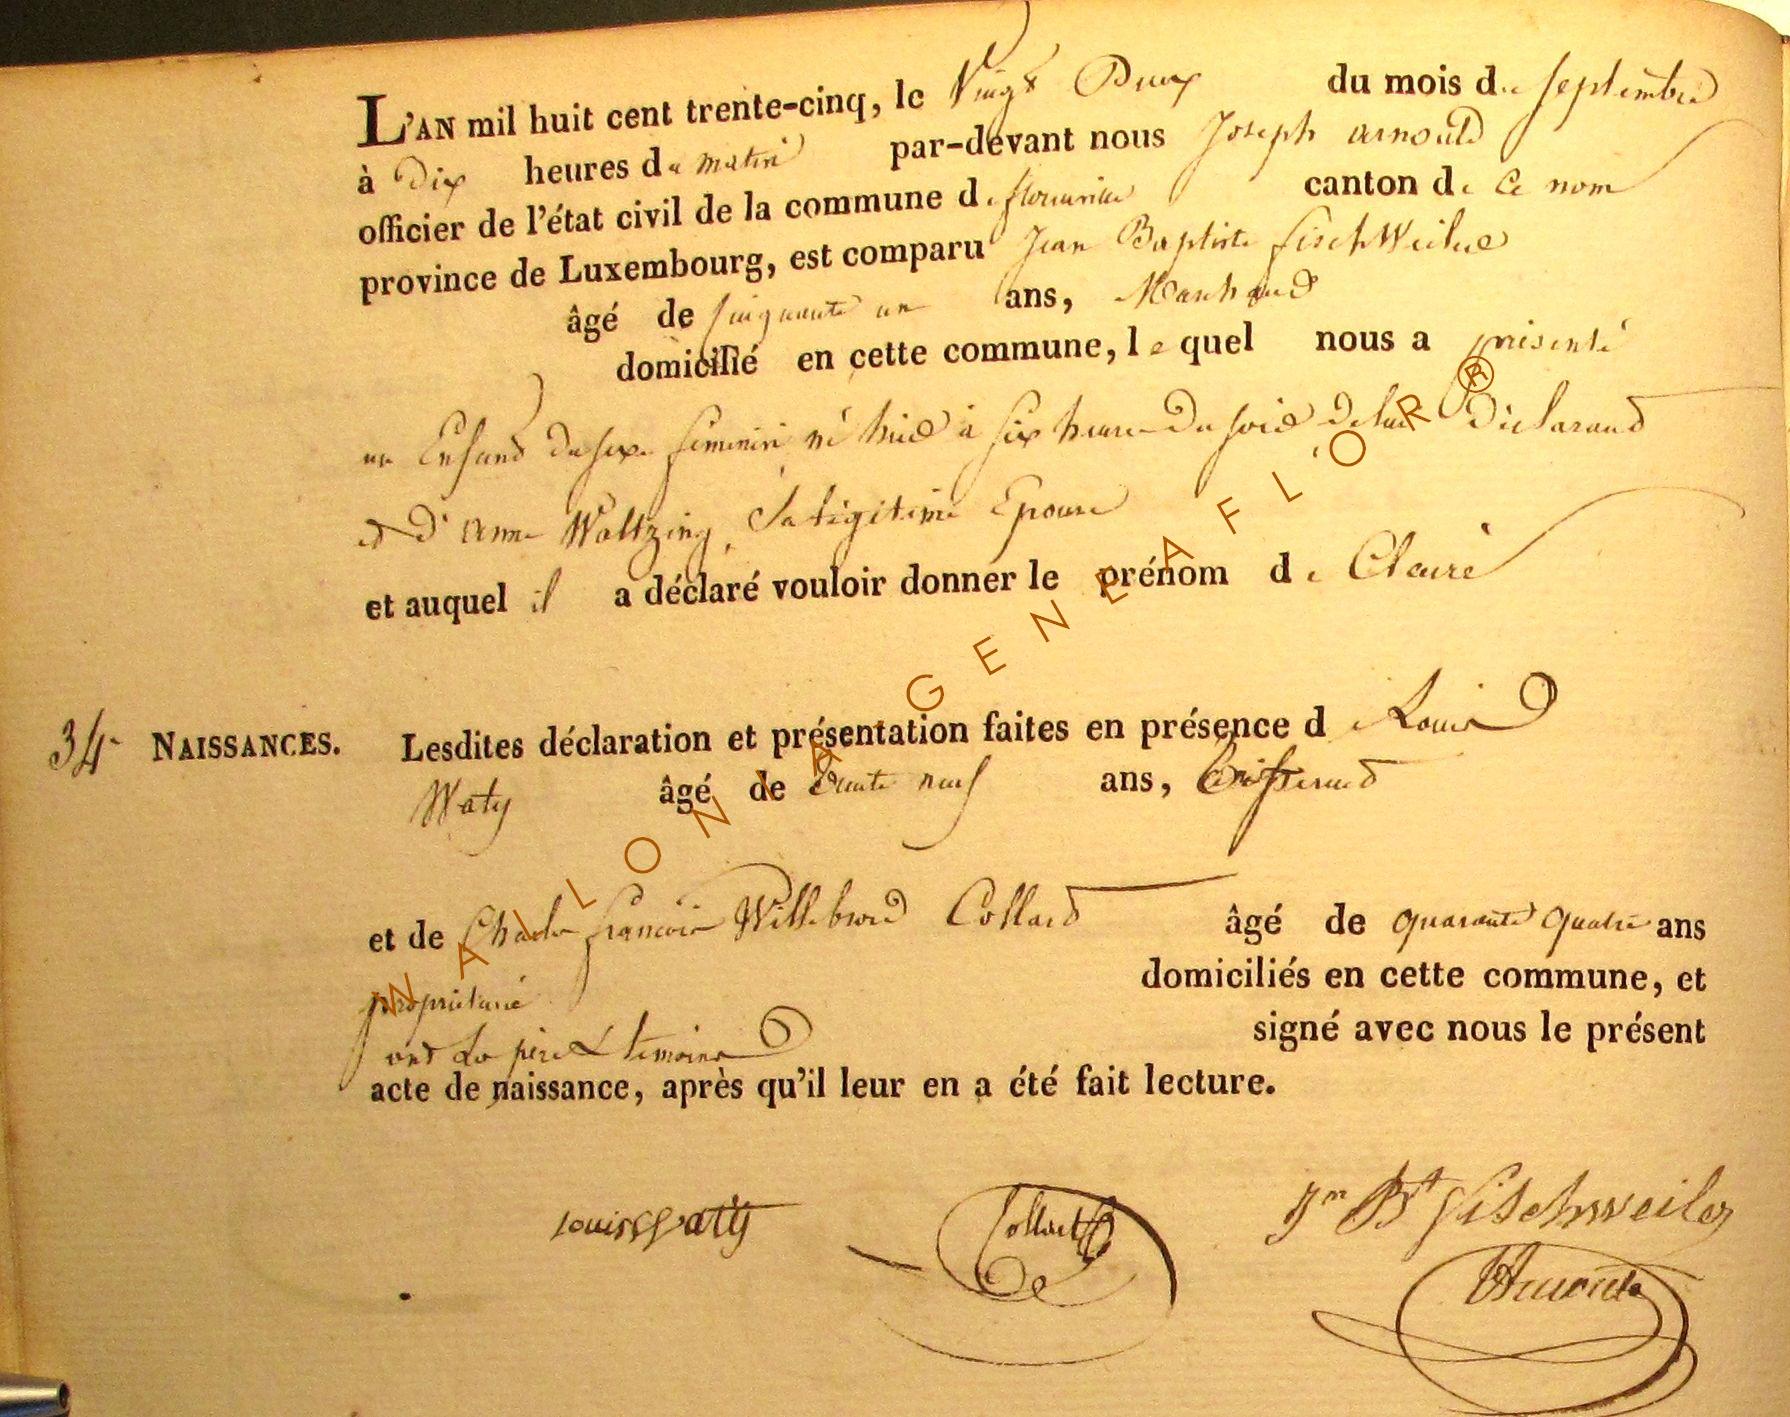 L'AN mil huit cent trente-cinq, le Vingt Deux du mois de septembre
à Dix heures du matin par-devant nous Joseph arnould
officier de l'état civil de la commune de florenville canton de Ce nom
province de Luxembourg, est comparu Jean Baptiste fischWeiler
âgé de cinquante un ans, Marchand
domicilié en cette commune, lequel nous a présenté
un Enfant du sexe féminin né hier à six heures du soir de lui Déclarant
et d'anne Waltzing, Sa légitime Epouse
et auquel il a déclaré vouloir donner le prénom de Claire
34 NAISSANCES. Lesdites déclaration et présentation faites en présence de Louis
Waty âgé de trente neuf ans,
et de Charles françois Willebrord Collard âgé de quarante quatre ans
propriétaire domiciliés en cette commune, et
ont Le père & témoins signé avec nous le présent
acte de naissance, après qu'il leur en a été fait lecture.
Louis Waty Collard Jn Bt Fischweiler
Arnould
WALLONIA GENEAFLOR ®